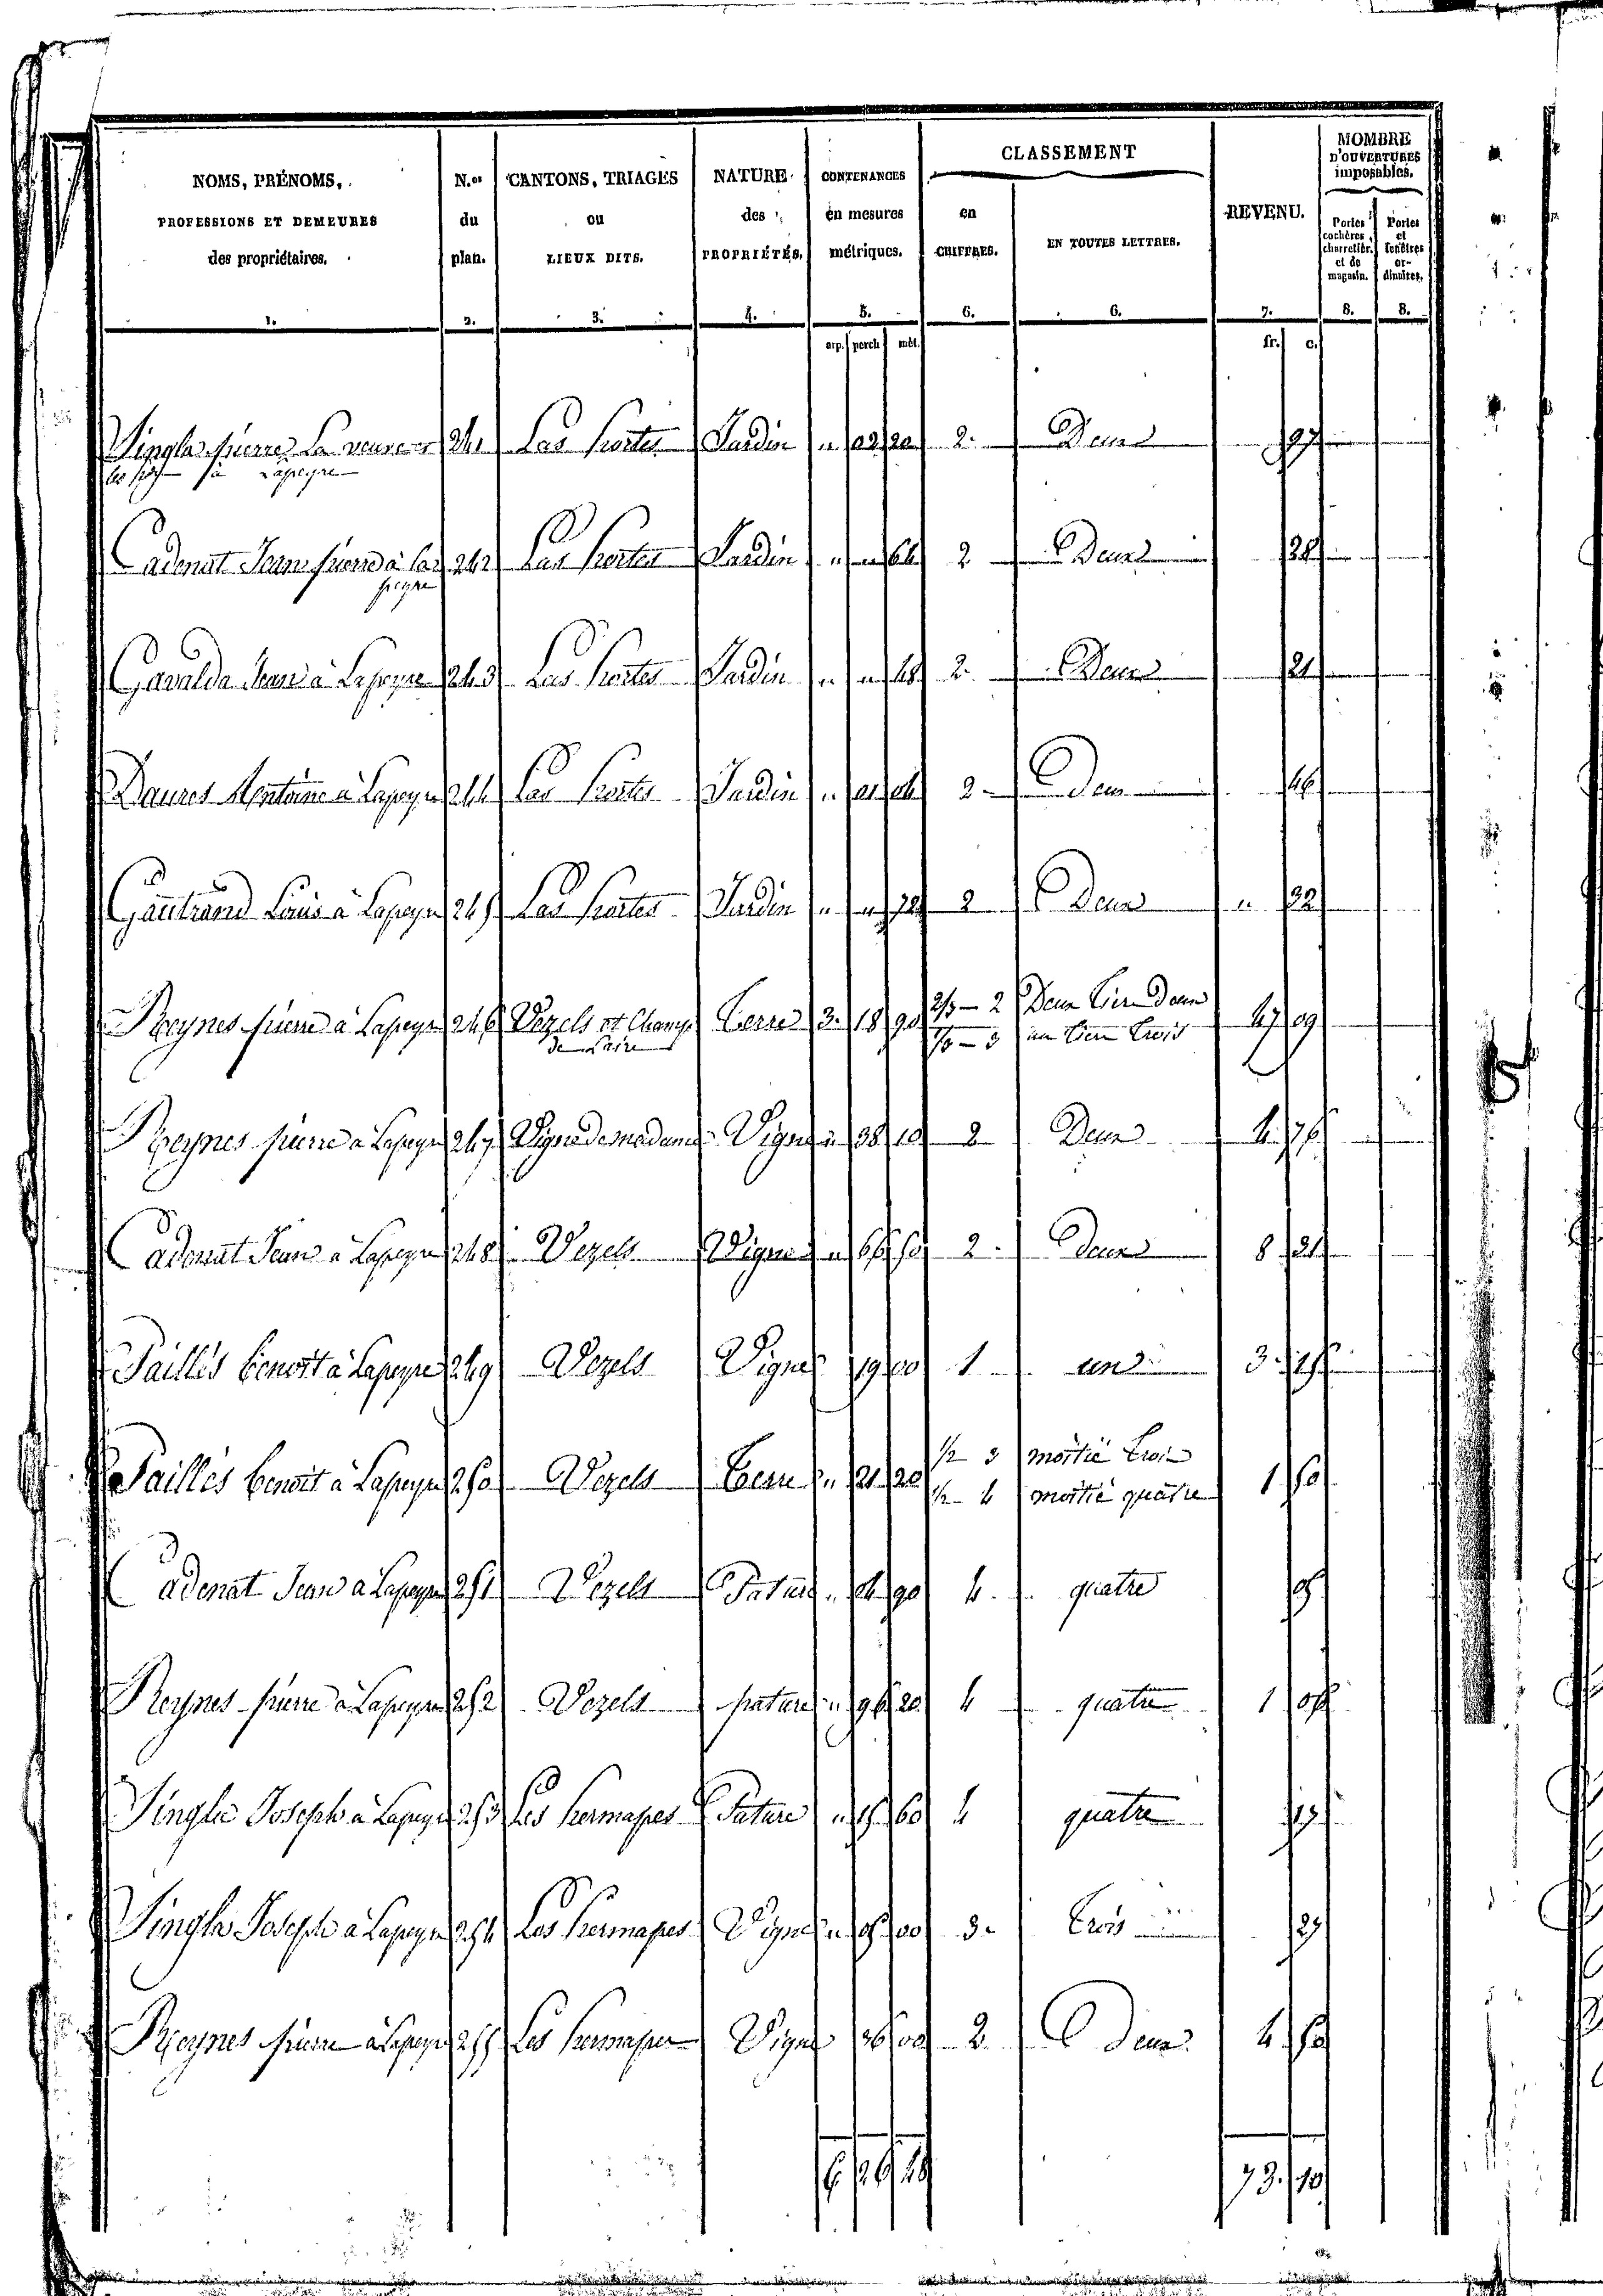 CLASSEMENT
NOMBRE D'OUVERTURES imposables.
NOMS, PRÉNOMS, PROFESSIONS ET DEMEURES des propriétaires.
N.os du plan.
CANTONS, TRIAGES ou LIEUX DITS.
NATURE des PROPRIÉTÉS.
CONTENANCES en mesures métriques.
en CHIFFRES.
EN TOUTES LETTRES.
REVENU.
Portes cochères, charretièr. et de magasin.
Portes et fenêtres ordinaires.
1. 2. 3. 4. 5. 6. 6. 7. 8. 8.
arp. perch. mèt. fr. c.
Singla pierre La veuve 241 Las Portes Jardin 2. Deux
à Lapeyre
Cadenat Jean pierre à La 242 Las Portes Jardin " " 64 2 Deux 28
peyre
Gavalda Jean à Lapeyre 243 Las Portes Jardin " " 48 2. Deux 21
Daures Antoine à Lapeyre 244 Las Portes Jardin " 01 04 2. Deux 46
Gautrand Louis à Lapeyre 245 Las Portes Jardin " " 72 2 Deux " 32
Reynes pierre à Lapeyre 246 Vezels et Champ Terre 3. 18 90 2/3 - 2 Deux tiers Deux 47 09
1/3 - 3 un tiers trois
Reynes pierre à Lapeyre 247 Vigne de madame Vigne " 38 10 2 Deux 4. 76
Cadenat Jean à Lapeyre 248 Vezels Vigne " 2. Deux 8 21
Taillés benoit à Lapeyre 249 Vezels Vigne 19 00 1 un 3.
Taillés benoit à Lapeyre 250 Vezels Terre " 21 20 1/2 3 moitié trois 1 50
1/2 - 4 moitié quatre
Cadenat Jean à Lapeyre 251 Vezels Pature " 04 90 4. quatre 05
Reynes pierre à Lapeyre 252 Vezels pature " 96 20 4 quatre 1 05
Singla Joseph à Lapeyre 253 Les Pature " 15 60 4 quatre 17
Singla Joseph à Lapeyre 254 Les Vigne " 05 00 3. trois
Reynes pierre à Lapeyre 255 Les Vigne 36 00 2. deux 4. 50
6 73. 10